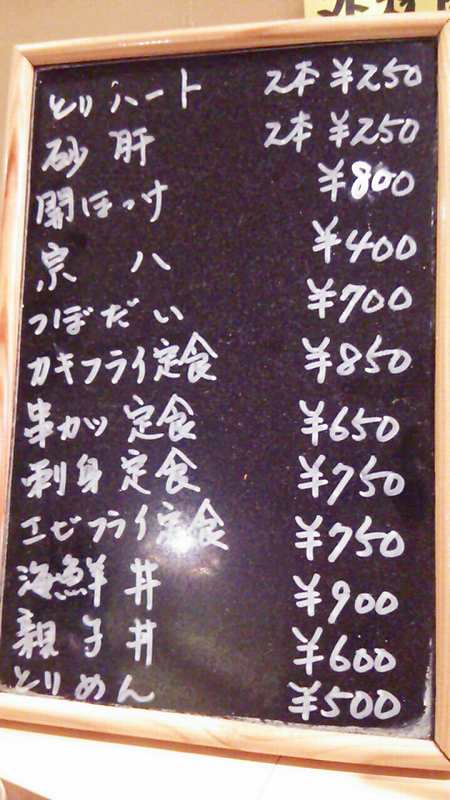 とりハート 2本 ¥250
砂肝 2本 ¥250
開ほっけ ¥800
宗八 ¥400
つぼだい ¥700
カキフライ定食 ¥850
串カツ定食 ¥650
刺身定食 ¥750
エビフライ定食 ¥750
海鮮丼 ¥900
親子丼 ¥600
とりめん ¥500